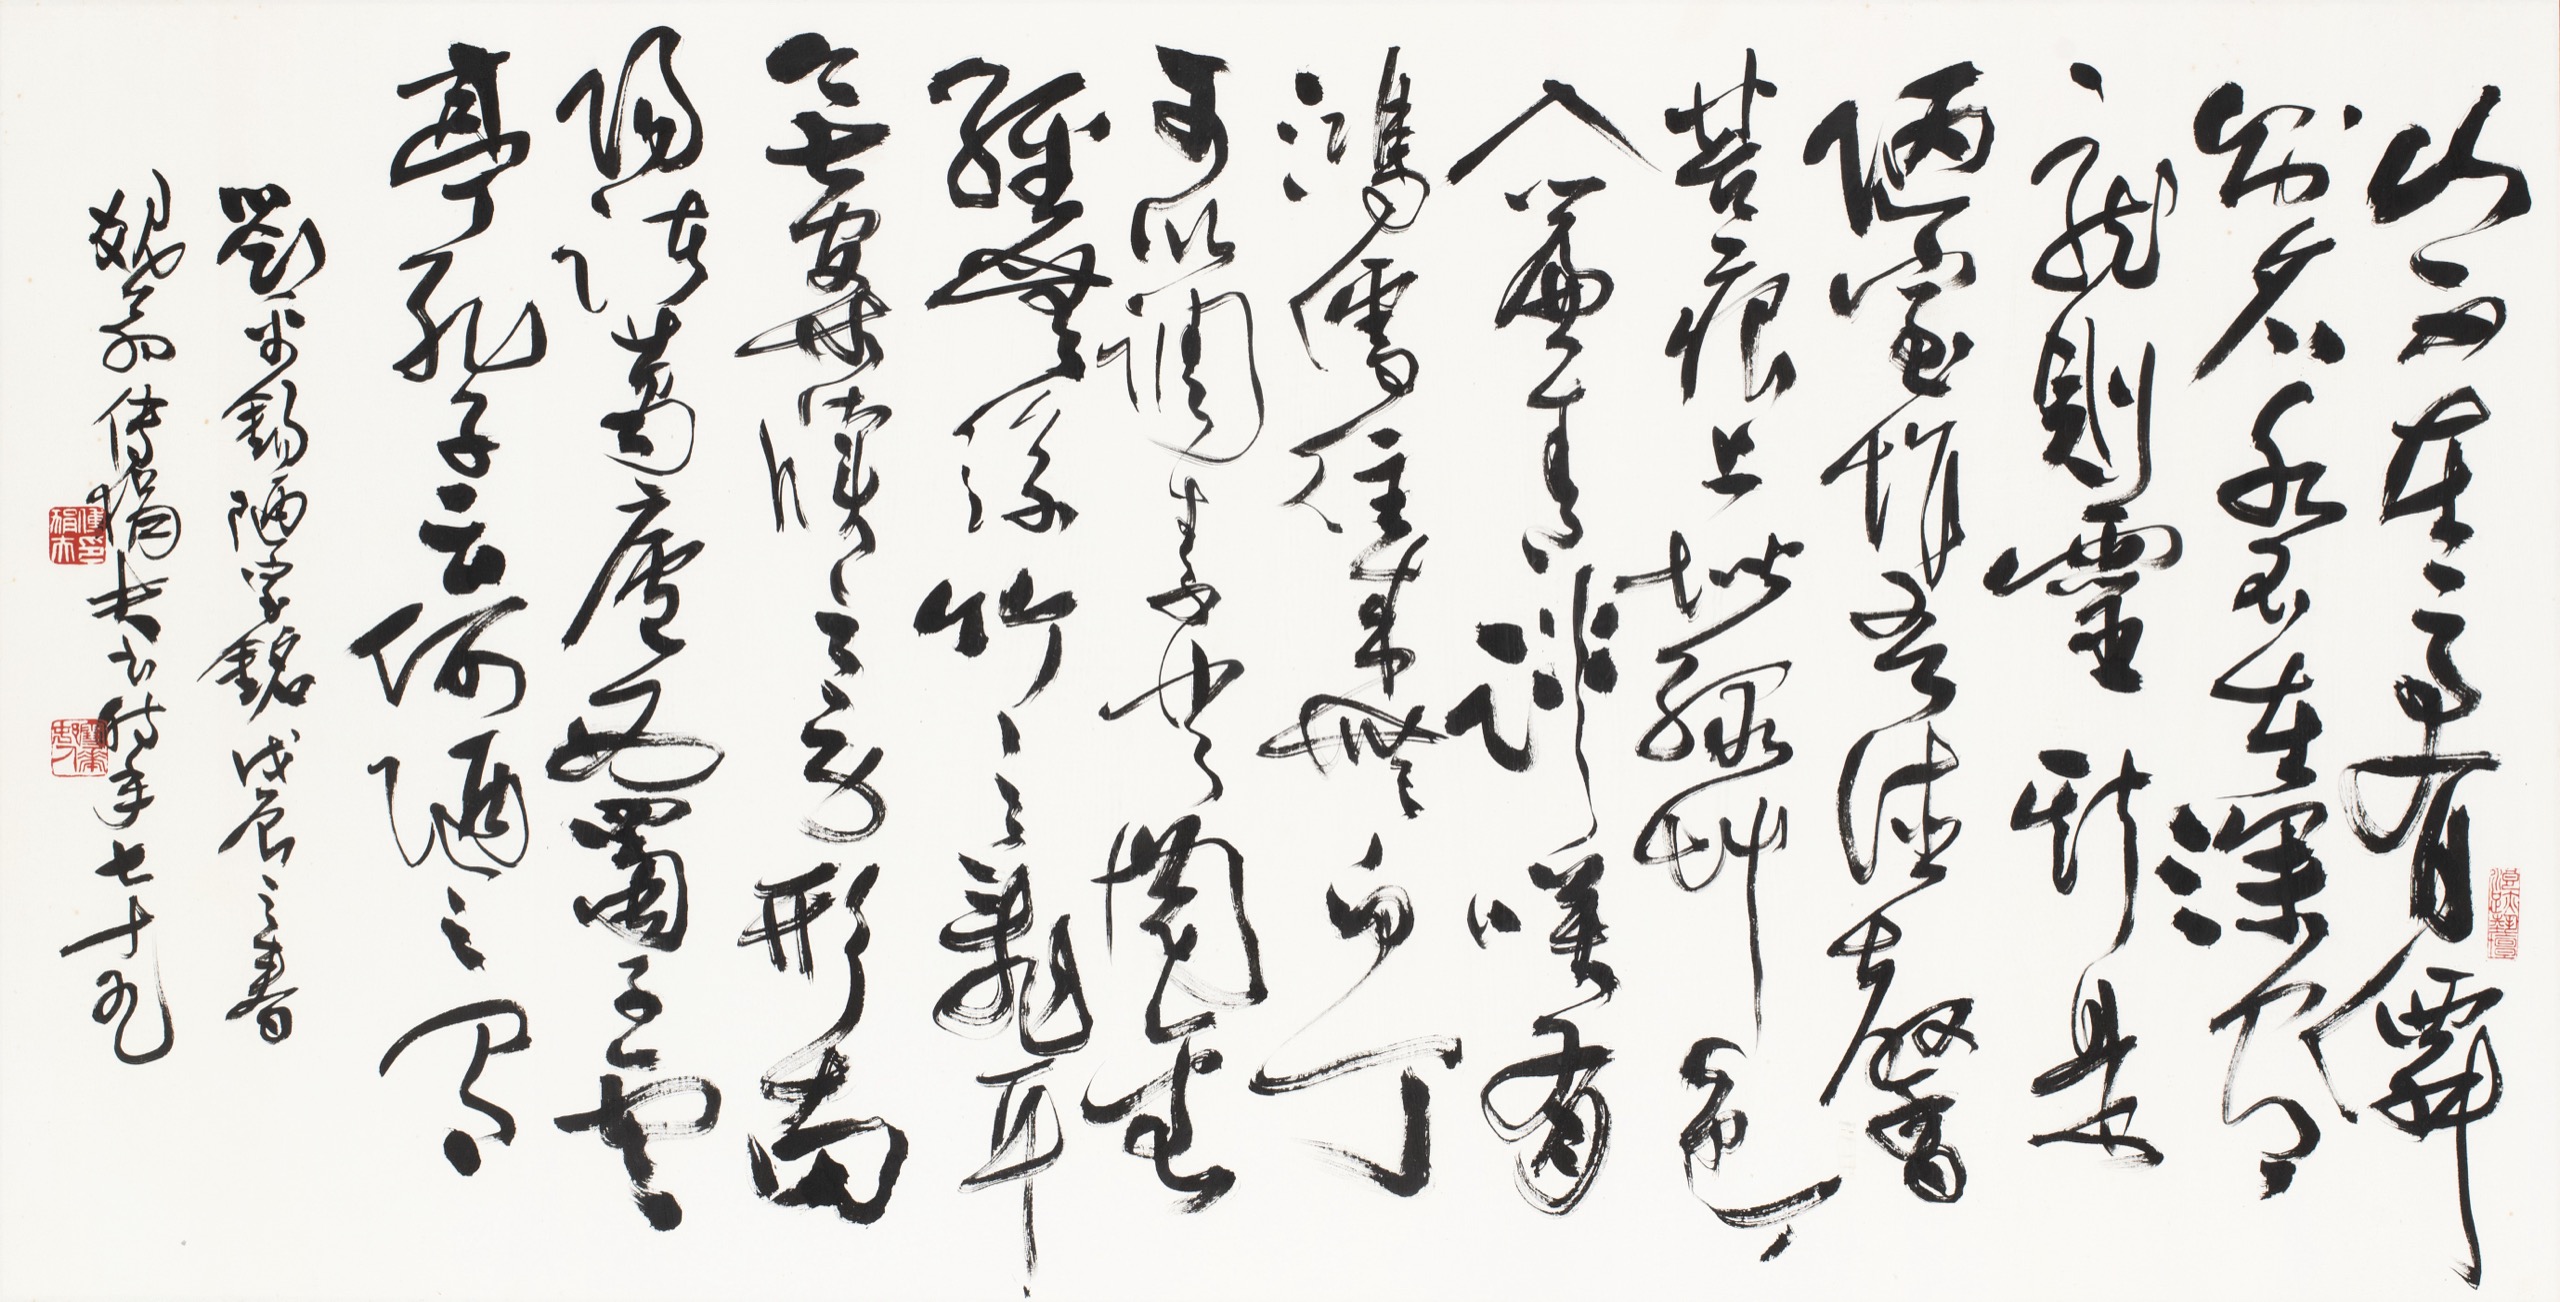 山不在高有僊
則名水不在深有
龍則靈斯是
陋室惟吾德馨
苔痕上堦綠艸色
入簾青談笑有
鴻儒往來無白丁
可以調素琴閱金
經無絲竹之亂耳
無案牘之勞形南
陽諸葛廬西蜀子雲
亭孔子云何陋之有
劉禹錫陋室銘戊辰之春
覺翁傅狷夫書時年七十九
傅印狷夫
混跡藝壇